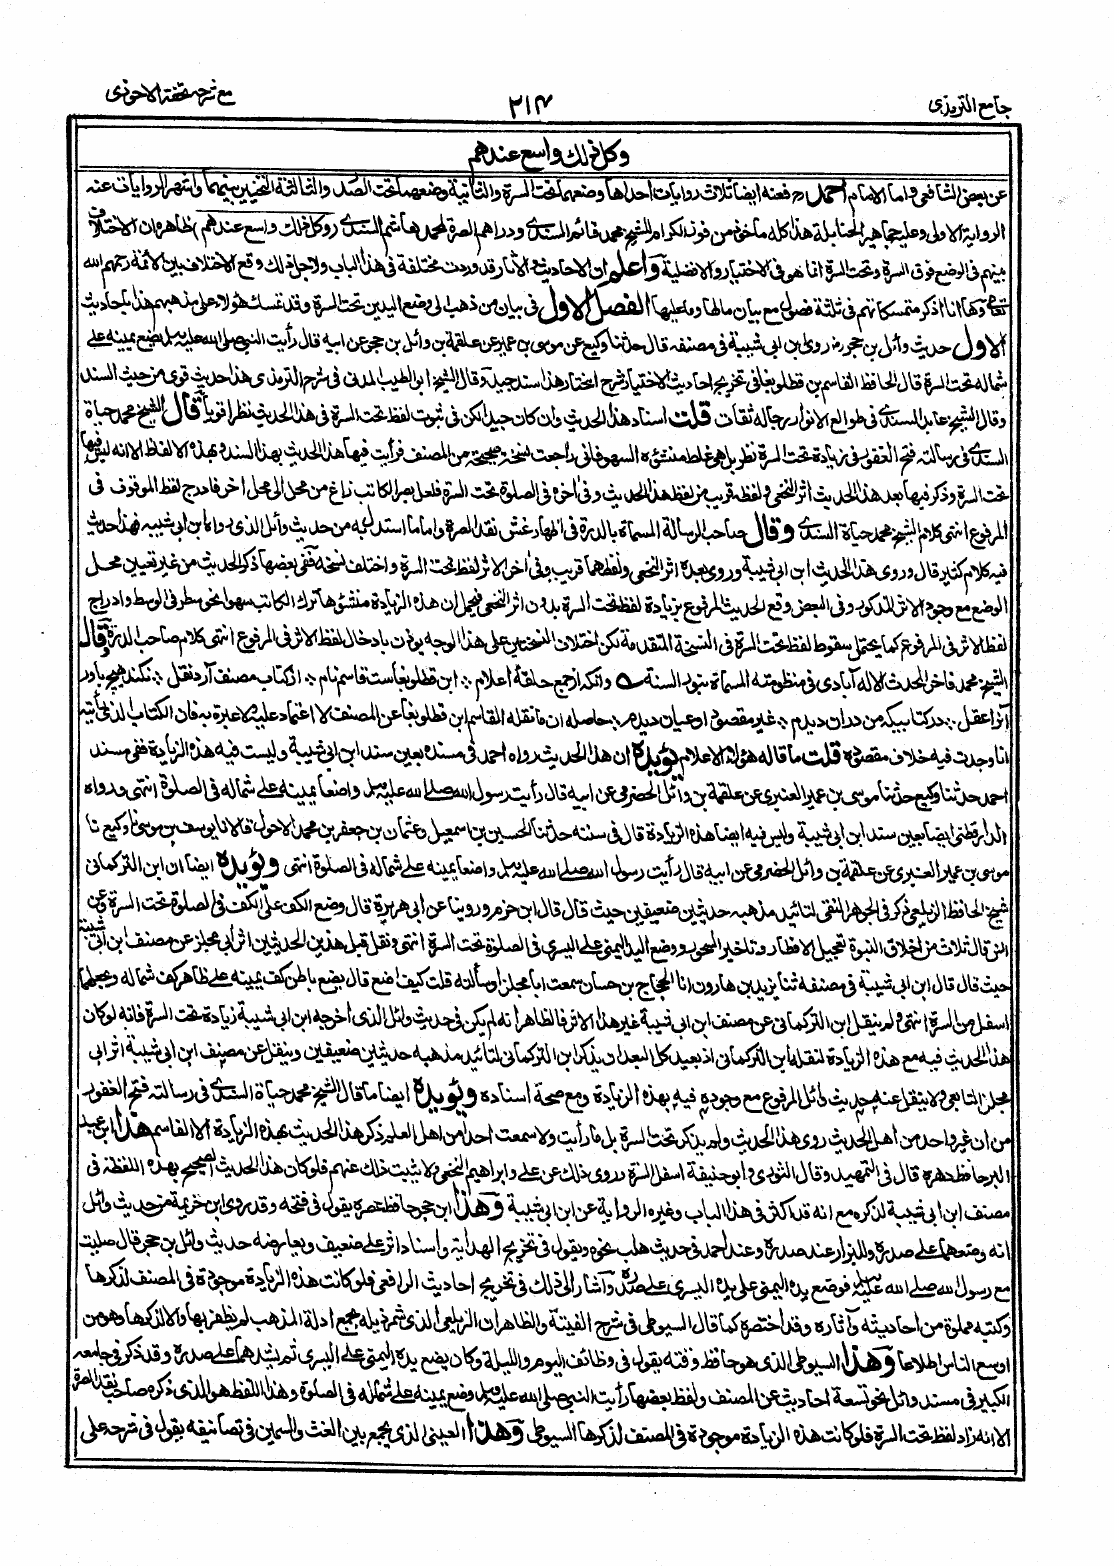 جامع الترمذی
۲۱۴
مع شرحہ تحفۃ الاحوذی
وکل ذلك واسع عندهم
عن بعض الشافعی واما الامام احمد رح فعنه ایضا ثلاث روایات احداها وضعهما تحت السرة والثانیة وضعهما تحت الصدر والثالثة التخییر بینهما واشهر الروایات عنه
الروایة الاولی وعلیه جماهیر الحنابلة هذا كله ماخوذ من فوز الكرام للشیخ محمد قائم السندی ودراهم الصرة لمحمد هاشم السندی (وكل ذلك واسع عندهم) ظاهره ان الاختلاف
بینهم فی الوضع فوق السرة وتحت السرة انما هو فی الاختیار والافضلیة واعلم ان الاحادیث والآثار قد وردت مختلفة فی هذا الباب ولاجل ذلك وقع الاختلاف بین الائمة رحمهم الله
تعالی وها انا اذكر متمسكاتهم فی ثلثة فصول مع بیان مالها وما علیها الفصل الاول فی بیان من ذهب الی وضع الیدین تحت السرة وقد تمسك هولاء علی مذهبهم هذا باحادیث
الاول حدیث وائل بن حجر رض روی ابن ابی شیبة فی مصنفه قال حدثنا وكیع عن موسی بن عمیر عن علقمة بن وائل بن حجر عن ابیه قال رأیت النبی صلی الله علیه وسلم یضع یمینه علی
شماله تحت السرة قال الحافظ القاسم بن قطلوبغا فی تخریج احادیث الاختیار شرح المختار هذا سند جید وقال الشیخ ابو الطیب المدنی فی شرح الترمذی هذا حدیث قوی من حیث السند
وقال الشیخ عابد السندی فی طوالع الانوار رجاله ثقات قلت اسناد هذا الحدیث وان كان جیدا لكن فی ثبوت لفظ تحت السرة فی هذا الحدیث نظرا قویا قال الشیخ محمد حیاة
السندی فی رسالته فتح الغفور فی زیادة تحت السرة نظر بل هی غلط منشئوه السهو فانی راجعت نسخة صحیحة من المصنف فرأیت فیها هذا الحدیث بهذا السند وبهذه الالفاظ الا انه لیس فیها
تحت السرة وذكر فیها بعد هذا الحدیث اثر النخعی ولفظه قریب من لفظ هذا الحدیث وفی اخره فی الصلوة تحت السرة فلعل بصر الكاتب زاغ من محل الی محل اخر فادرج لفظ الموقوف فی
المرفوع انتهی كلام الشیخ محمد حیاة السندی وقال صاحب الرسالة المسماة بالدرة فی اظهار غش نقد الصرة واما ما استدل به من حدیث وائل الذی رواه ابن ابی شیبه فهذا حدیث
فیه كلام كثیر قال وروی هذا الحدیث ابن ابی شیبة وروی بعده اثر النخعی ولفظهما قریب وفی اخر الاثر لفظ تحت السرة واختلف نسخه ففی بعضها ذكر الحدیث من غیر تعیین محل
الوضع مع وجود الاثر المذكور وفی البعض وقع الحدیث المرفوع بزیادة لفظ تحت السرة بدون اثر النخعی فیحتمل ان هذه الزیادة منشؤها ترك الكاتب سهوا نحو سطر فی الوسط وادراج
لفظ الاثر فی المرفوع كما یحتمل سقوط لفظ تحت السرة فی النسخة المتقدمة لكن اختلاف النسختین علی هذا الوجه یؤذن بادخال لفظ الاثر فی المرفوع انتهی كلام صاحب الدرة وقال
الشیخ محمد فاخر المحدث الاله آبادی فی منظومته المسماة بنور السنة وانكه از جمع حلقۀ اعلام ٭ ابن قطلوبغاست قاسم نام ٭ از كتاب مصنف آرد نقل ٭ نكند هیچ باور
آنرا عقل ٭ در كتابیكه من دران دیدم ٭ غیر مقصود او عیان دیدم ٭ حاصله ان ما نقله القاسم ابن قطلوبغا عن المصنف لا اعتماد علیه ولا عبرة به فان الكتاب الذی رأیته
انا وجدت فیه خلاف مقصوده قلت ما قاله هؤلاء الاعلام یؤیده ان هذا الحدیث رواه احمد فی مسنده بعین سند ابن ابی شیبة ولیست فیه هذه الزیادة ففی مسند
احمد حدثنا وكیع حدثنا موسی بن عمیر العنبری عن علقمة بن وائل الحضرمی عن ابیه قال رأیت رسول الله صلی الله علیه وسلم واضعا یمینه علی شماله فی الصلوة انتهی ورواه
الدارقطنی ایضا بعین سند ابن ابی شیبة ولیس فیه ایضا هذه الزیادة قال فی سننه حدثنا الحسین بن اسمعیل وعثمان بن جعفر بن محمد الاحول قالا نا یوسف بن موسی نا وكیع نا
موسی بن عمیر العنبری عن علقمة بن وائل الحضرمی عن ابیه قال رأیت رسول الله صلی الله علیه وسلم واضعا یمینه علی شماله فی الصلوة انتهی ویؤیده ایضا ان ابن التركمانی
شیخ الحافظ الزیلعی ذكر فی الجوهر النقی لتائید مذهبه حدیثین ضعیفین حیث قال قال ابن حزم روینا عن ابی هریرة قال وضع الكف علی الكف فی الصلوة تحت السرة وعن
انس قال ثلاث من اخلاق النبوة تعجیل الافطار وتاخیر السحور ووضع الید الیمنی علی الیسری فی الصلوة تحت السرة انتهی ونقل قبل هذین الحدیثین اثر ابی مجلز عن مصنف ابن ابی شیبة
حیث قال قال ابن ابی شیبة فی مصنفه ثنا یزید بن هارون انا الحجاج بن حسان سمعت ابا مجلز او سألته قلت كیف اضع قال یضع باطن كف یمینه علی ظاهر كف شماله ویجعلهما
اسفل من السرة انتهی ولم ینقل ابن التركمانی عن مصنف ابن ابی شیبة غیر هذا الاثر فالظاهر انه لم یكن فی حدیث وائل الذی أخرجه ابن ابی شیبة زیادة تحت السرة فانه لو كان
هذا الحدیث فیه مع هذه الزیادة لنقله ابن التركمانی اذ بعید كل البعد ان یذكر ابن التركمانی لتائید مذهبه حدیثین ضعیفین وینقل عن مصنف ابن ابی شیبة اثر ابی
مجلز التابعی ولا ینقل عنه حدیث وائل المرفوع مع وجوده فیه بهذه الزیادة ومع صحة اسناده ویؤیده ایضا ما قال الشیخ محمد حیاة السندی فی رسالته فتح الغفور
من ان غیر واحد من اهل الحدیث روی هذا الحدیث ولم یذكر تحت السرة بل ما رأیت ولا سمعت احدا من اهل العلم ذكر هذا الحدیث بهذه الزیادة الا القاسم هذا ابن عبد
البر حافظ دهره قال فی التمهید وقال الثوری وابو حنیفة اسفل السرة وروی ذلك عن علی وابراهیم النخعی ولا یثبت ذلك عنهم فلو كان هذا الحدیث الصحیح بهذه اللفظة فی
مصنف ابن ابی شیبة لذكره مع انه قد اكثر فی هذا الباب وغیره الروایة عن ابن ابی شیبة وهذا ابن حجر حافظ عصره یقول فی فتحه وقد روی ابن خزیمة من حدیث وائل
انه وضعهما علی صدره وللبزار عند صدره وعند احمد فی حدیث هلب نحوه ویقول فی تخریج الهدایة واسناد اثر علی ضعیف ویعارضه حدیث وائل بن حجر قال صلیت
مع رسول الله صلی الله علیه وسلم فوضع یده الیمنی علی یده الیسری علی صدره وأشار الی ذلك فی تخریج احادیث الرافعی فلو كانت هذه الزیادة موجودة فی المصنف لذكرها
وكتبه مملوة من احادیثه وآثاره وقد اختصره كما قال السیوطی فی شرح الفیته والظاهر ان الزیلعی الذی شمر ذیله بجمع ادلة المذهب لم یظفر بها والا لذكرها وهو من
اوسع الناس اطلاعا وهذا السیوطی الذی هو حافظ وقته یقول فی وظائف الیوم واللیلة وكان یضع یده الیمنی علی الیسری ثم یشدهما علی صدره وقد ذكر فی جامعه
الكبیر فی مسند وائل نحو تسعة احادیث عن المصنف ولفظ بعضها رأیت النبی صلی الله علیه وسلم وضع یمینه علی شماله فی الصلوة وهذا اللفظ هو الذی ذكره صاحب نقد الصرة
الا انه زاد لفظ تحت السرة فلو كانت هذه الزیادة موجودة فی المصنف لذكرها السیوطی وهذا العینی الذی یجمع بین الغث والسمین فی تصانیفه یقول فی شرحه علی